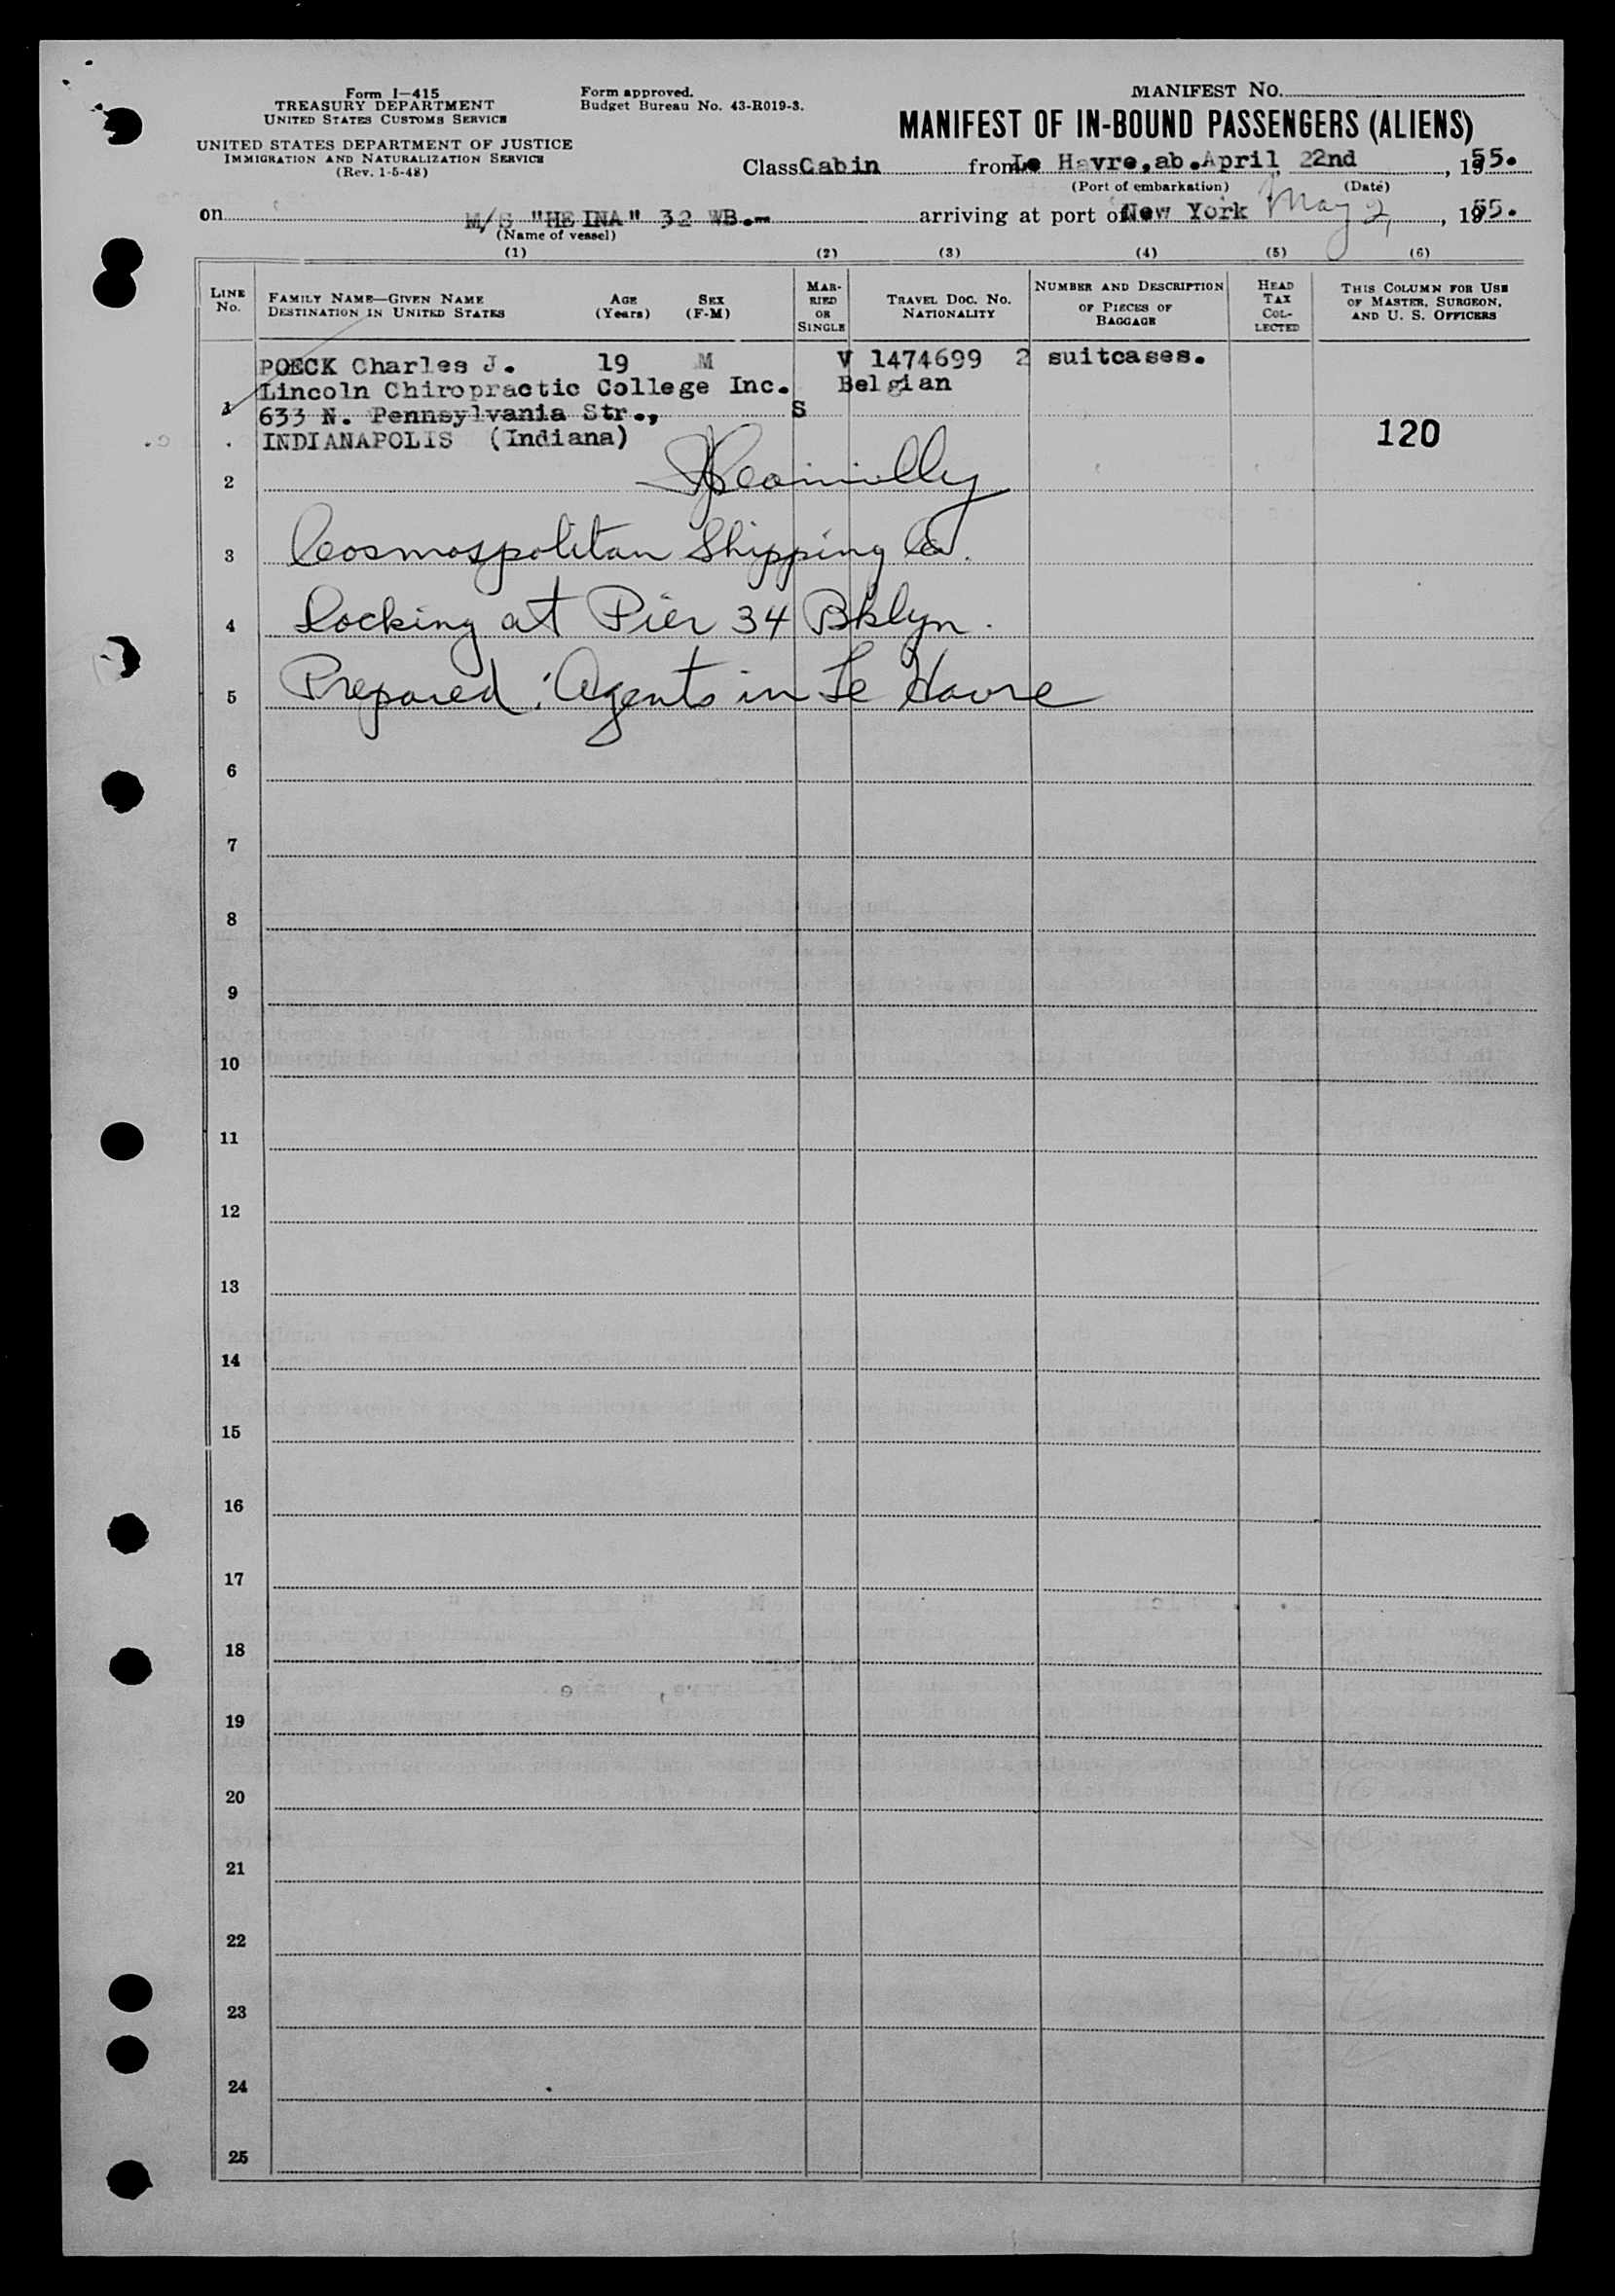 Form I-415
TREASURY DEPARTMENT
UNITED STATES CUSTOMS SERVICE
UNITED STATES DEPARTMENT OF JUSTICE
IMMIGRATION AND NATURALIZATION SERVICE
(Rev. 1-5-48)
Form approved.
Budget Bureau No. 43-R019-3.
MANIFEST NO.
MANIFEST OF IN-BOUND PASSENGERS (ALIENS)
Class Cabin from Le Havre, ab. April, 22nd, 1955.
(Port of embarkation) (Date)
on M/S "HEINA" 32 WB.- arriving at port of New York May 2, 1955.
(Name of vessel)
(1) (2) (3) (4) (5) (6)
LINE No.
FAMILY NAME—GIVEN NAME AGE SEX
DESTINATION IN UNITED STATES (Years) (F-M)
MARRIED OR SINGLE
TRAVEL DOC. NO. NATIONALITY
NUMBER AND DESCRIPTION OF PIECES OF BAGGAGE
HEAD TAX COLLECTED
THIS COLUMN FOR USE OF MASTER, SURGEON, AND U. S. OFFICERS
POECK Charles J. 19 M V 1474699 2 suitcases.
Lincoln Chiropractic College Inc. Belgian
1 633 N. Pennsylvania Str., S
INDIANAPOLIS (Indiana) 120
2
3 Cosmospolitan Shipping Co.
4 Docking at Pier 34 Bklyn.
5 Prepared : Agents in Le Havre
6
7
8
9
10
11
12
13
14
15
16
17
18
19
20
21
22
23
24
25